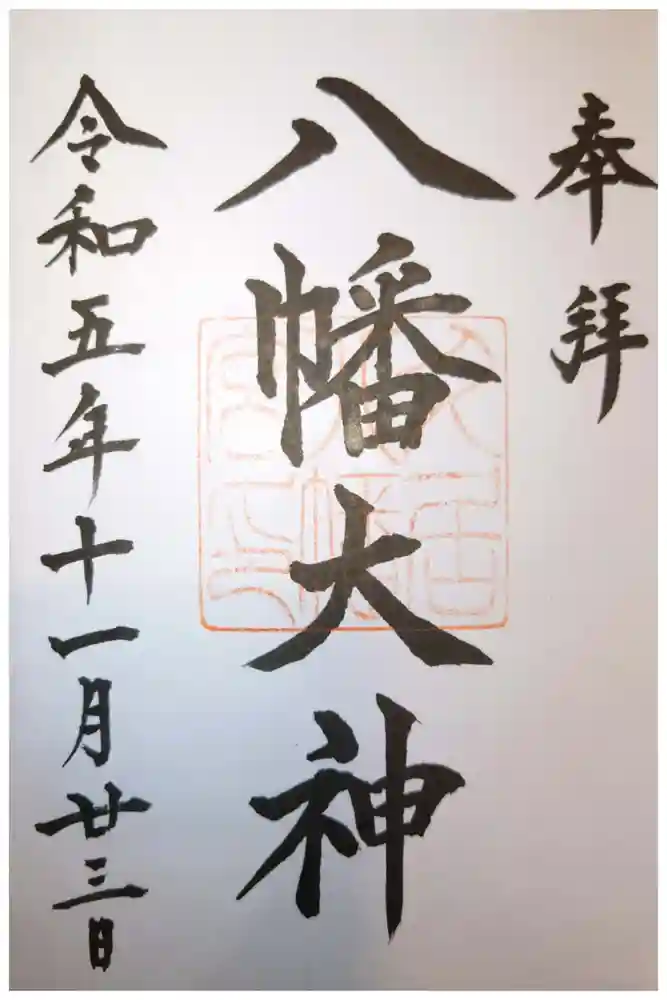 奉拝
八幡大神
令和五年十一月廿三日